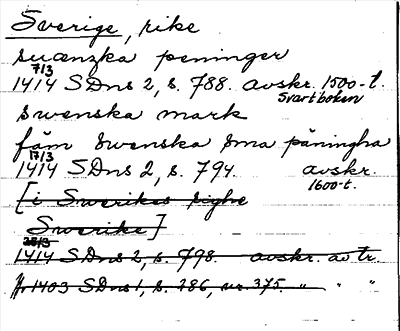 Sverige, rike
suænzka peninger
7/3
1414 SDns 2, s. 788. avskr. 1500-t.
Svartboken
swenska mark
fäm swenska sma päningha
17/3
1414 SDns 2, s. 794. avskr.
1600-t.
[i Swerikes righe
Swerike]
28/3
1414 SDns 2, s. 798. avskr. av tr.
Jfr 1403 SDns 1, s. 286, nr. 375. " " "